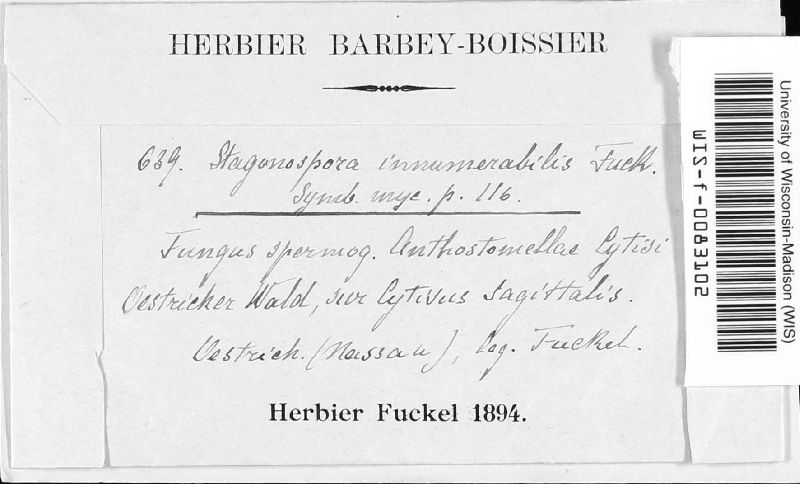 HERBIER BARBEY-BOISSIER
639. Stagonospora innumerabilis Fuck.
Symb. myc. p. 116.
Fungus spermog. Anthostomellae Cytisi
Oestricher Wald, sur Cytisus sagittalis.
Oestrich. (Nassau), leg. Fuckel.
Herbier Fuckel 1894.
University of Wisconsin-Madison (WIS)
WIS-f-0083102